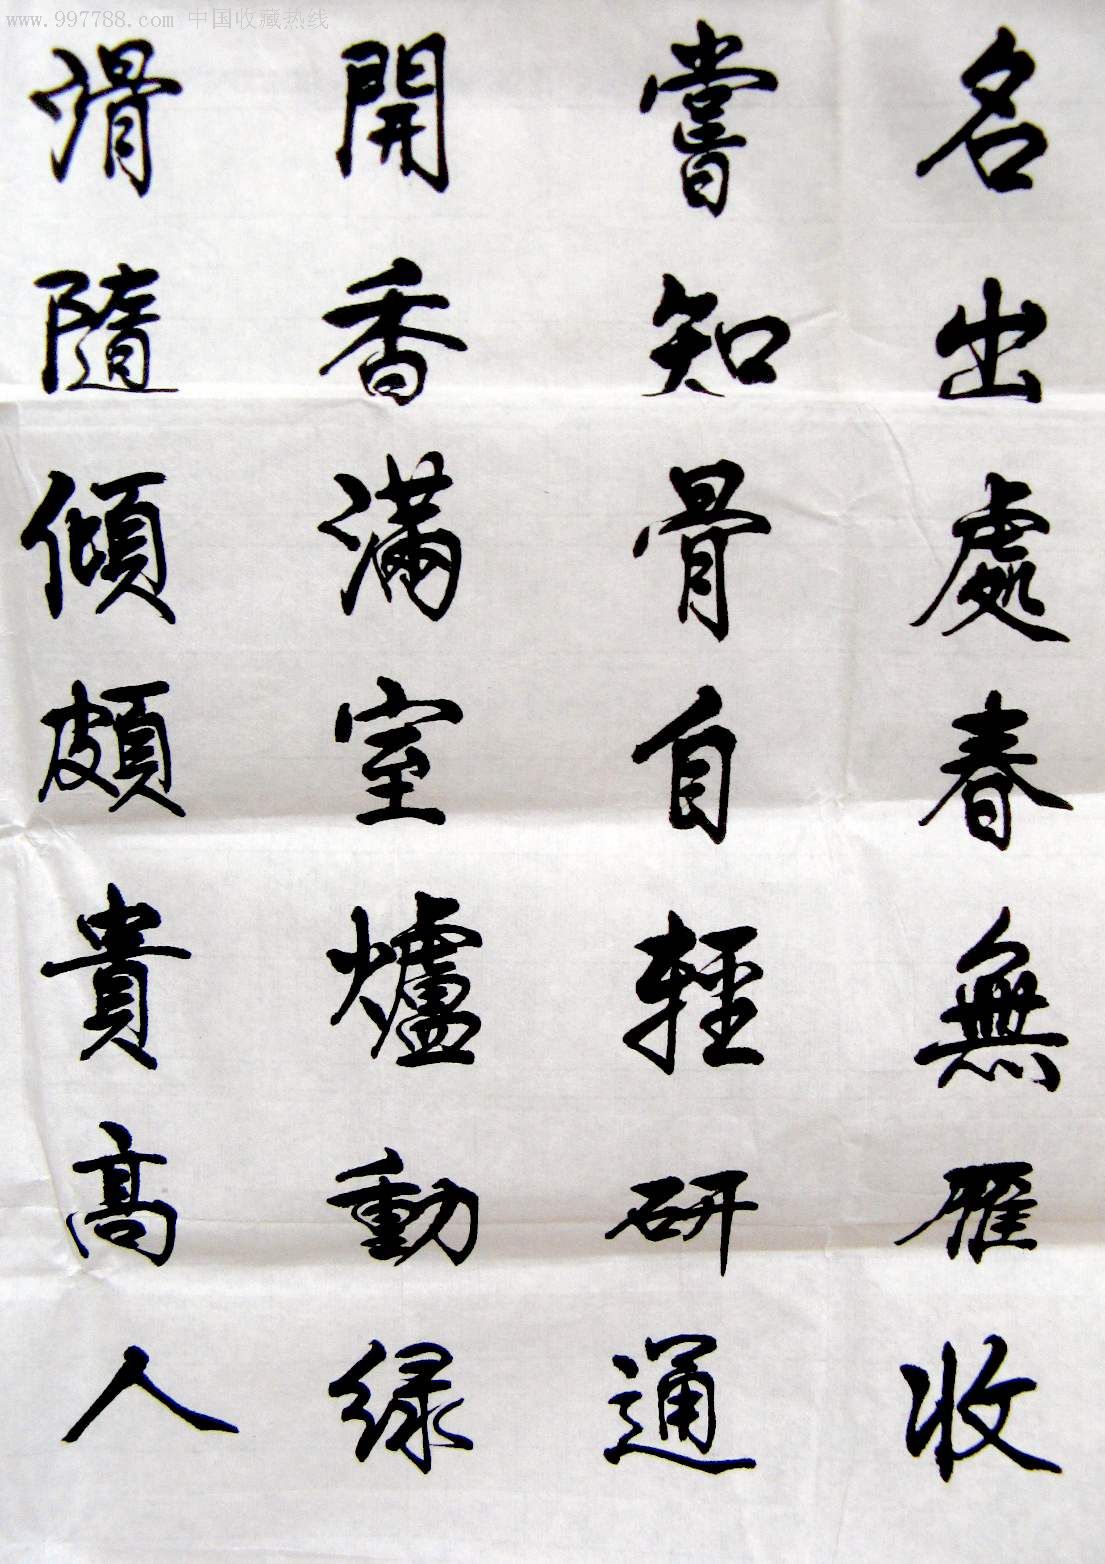 www.997788.com 中国收藏热线
名出處春無雁收
嘗知骨自輕研通
開香滿室爐動緑
滑隨傾頗貴高人